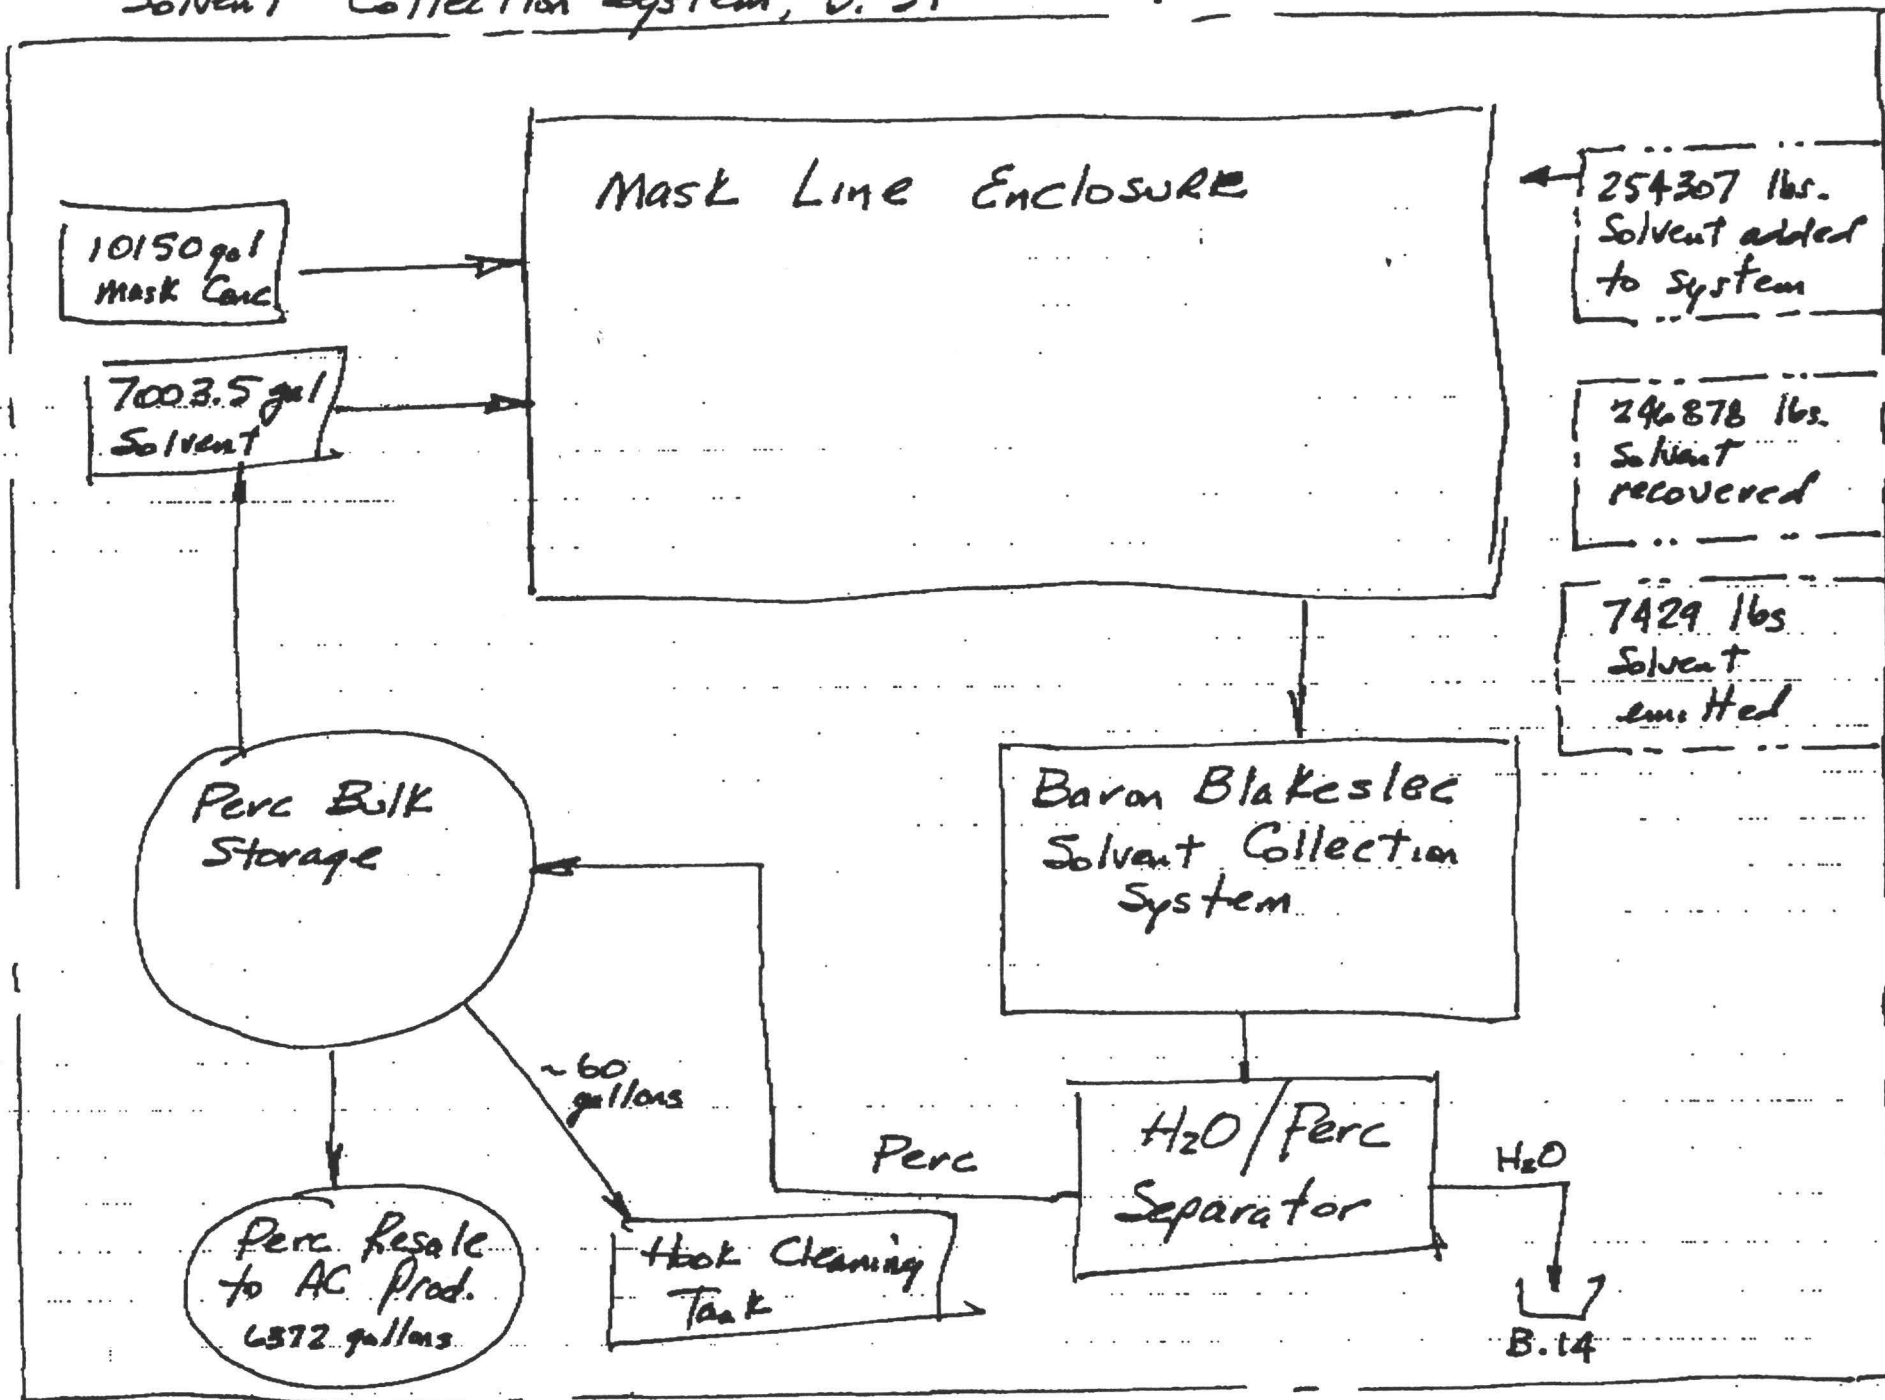 Solvent Collection System,
Mask Line Enclosure
10150 gal
Mask Conc
7003.5 gal
Solvent
254307 lbs.
Solvent added
to system
246878 lbs.
Solvent
recovered
7429 lbs
Solvent
emitted
Perc Bulk
Storage
Baron Blakeslee
Solvent Collection
System
~60
gallons
Perc
H2O/Perc
Separator
H2O
B.14
Hook Cleaning
Tank
Perc Resale
to AC Prod.
6372 gallons